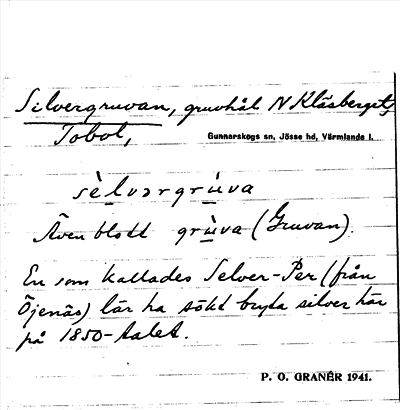 Silvergruvan, gruvhål N Kläsberget,
Tobol,
Gunnarskogs sn, Jösse hd, Värmlands l.
sèlvərgrùva
Även blott grùva (Gruvan).
En som kallades Selver-Per (från
Öjenäs) lär ha sökt bryta silver här
på 1850-talet.
P. O. GRANÉR 1941.